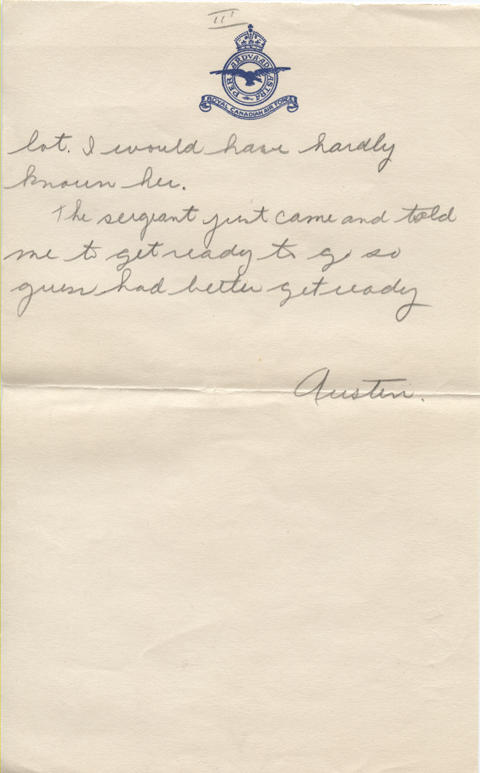 III
PER ARDUA AD ASTRA
ROYAL CANADIAN AIR FORCE
lot. I would have hardly
known her.
The sergeant just came and told
me to get ready to go so
guess had better get ready
Austin.